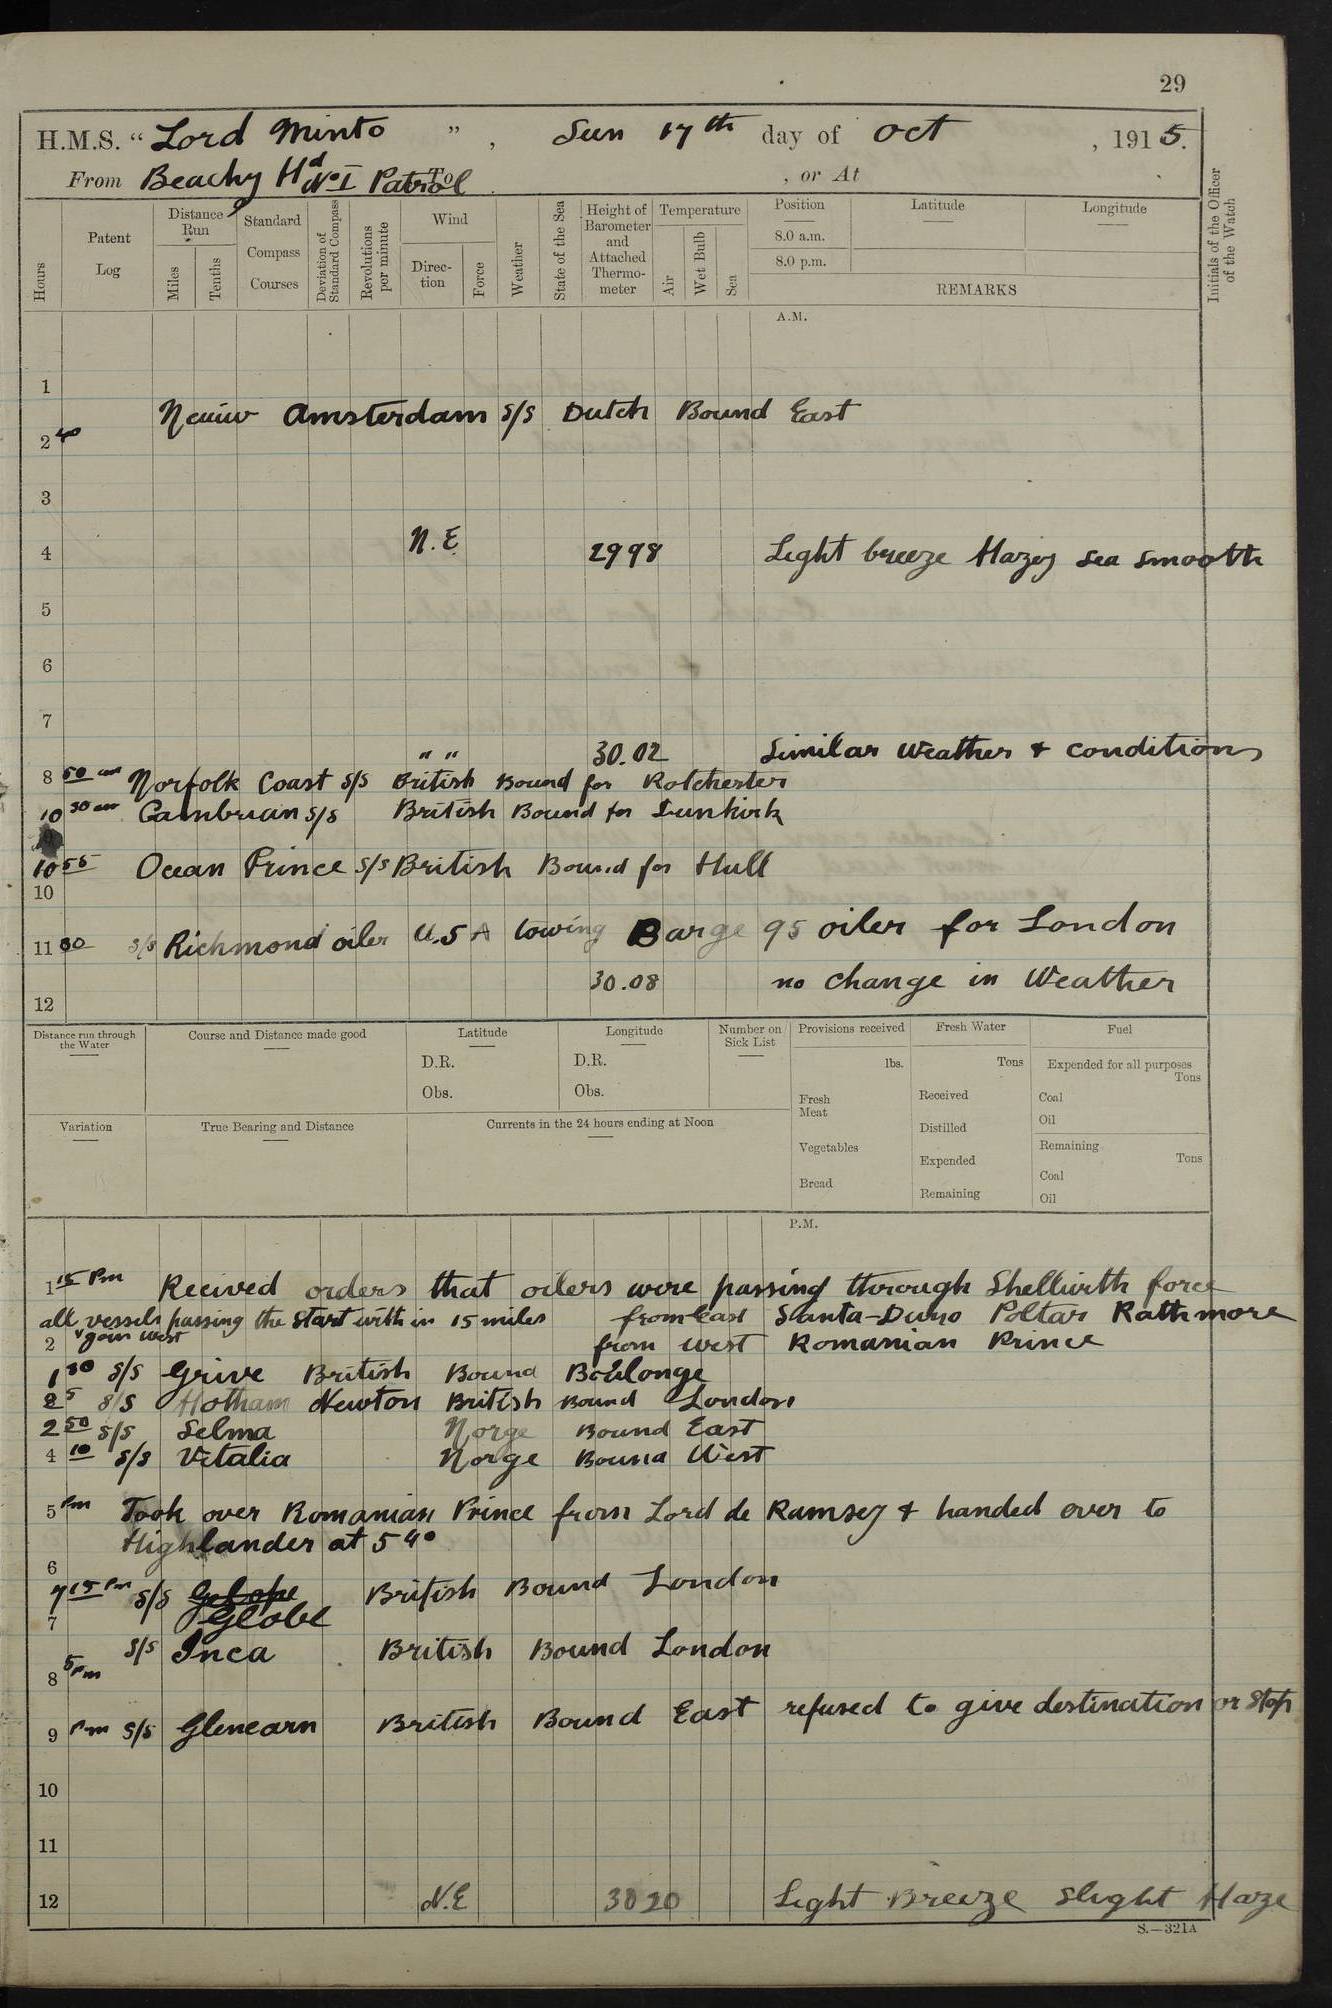 29
H.M.S. "Lord Minto", Sun 17th day of Oct, 1915.
From Beachy Hd No I Patrol To , or At
Hours
Patent Log
Distance Run
Miles
Tenths
Standard Compass Courses
Deviation of Standard Compass
Revolutions per minute
Wind
Direction
Force
Weather
State of the Sea
Height of Barometer and Attached Thermometer
Temperature
Air
Wet Bulb
Sea
Position
8.0 a.m.
8.0 p.m.
Latitude
Longitude
REMARKS
Initials of the Officer of the Watch
A.M.
1
Neuiw Amsterdam s/s Dutch Bound East
2 40
3
4 N.E 2998 Light breeze Hazey sea smooth
5
6
7
" " 30.02 Similar weather & conditions
8 50 am Norfolk Coast s/s British Bound for Rotchester
10 30 am Cambrian s/s British Bound for Dunkirk
10 55 Ocean Prince s/s British Bound for Hull
10
11 30 s/s Richmond oiler U.S A towing Barge 95 oiler for London
30.08 no change in Weather
12
Distance run through the Water
Course and Distance made good
Latitude
D.R.
Obs.
Longitude
D.R.
Obs.
Number on Sick List
Provisions received
lbs.
Fresh Meat
Vegetables
Bread
Fresh Water
Tons
Received
Distilled
Expended
Remaining
Fuel
Expended for all purposes
Tons
Coal
Oil
Remaining
Tons
Coal
Oil
Variation
True Bearing and Distance
Currents in the 24 hours ending at Noon
P.M.
1 15 Pm Recived orders that oilers were passing through Shellwith force
all vessels passing the Start with in 15 miles from East Santa-Duno Poltar Rathmore
2 going west from west Romanian Prince
1 30 s/s Grive British Bound Boulonge
2 5 s/s Hotham Newton British Bound London
2 50 s/s Selma Norge Bound East
4 10 s/s Vitalia Norge Bound West
5 Pm Took over Romanian Prince from Lord de Ramsey & handed over to
Highlander at 5 40
6
7 15 Pm s/s British Bound London
7 Globe
s/s Inca British Bound London
8 5 Pm
9 Pm s/s Glenearn British Bound East refused to give destination or Stop
10
11
12 N.E 3020 Light Breeze Slight Haze
S.—321A